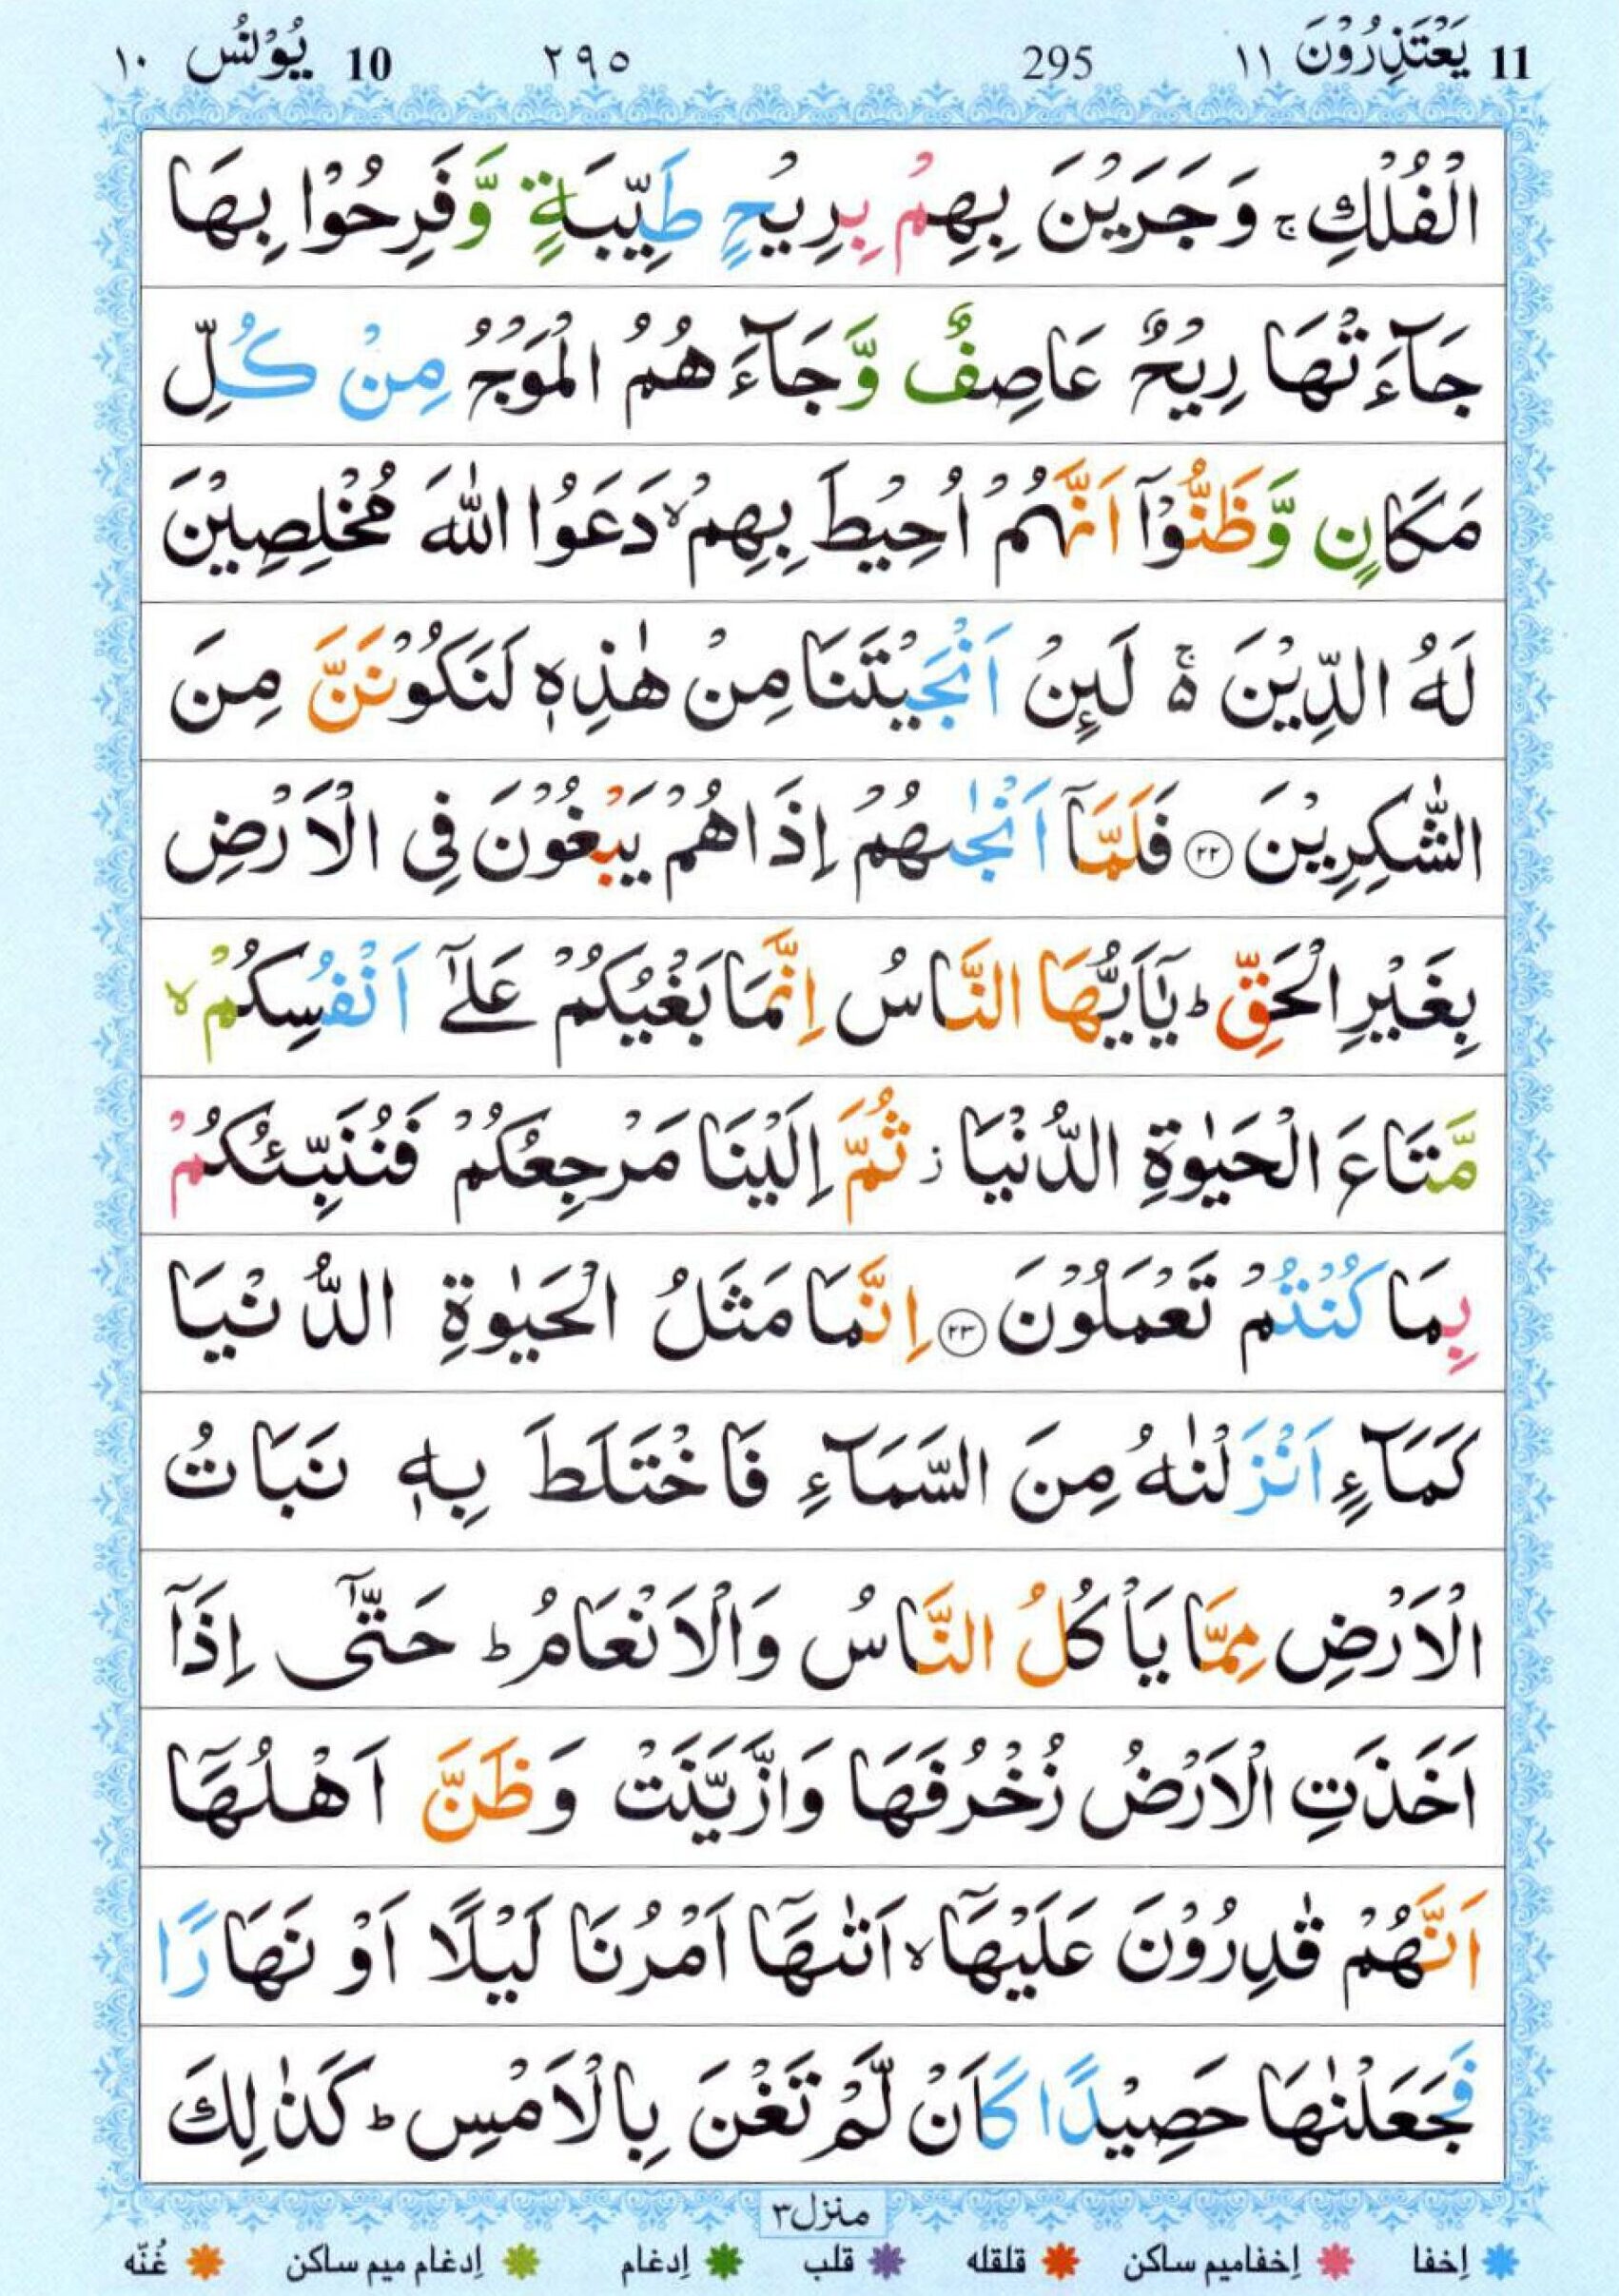 11 يَعْتَذِرُوْنَ ١١ 295 ٢٩٥ 10 يُوْنُس ١٠
الْفُلْكِ ۚ وَجَرَيْنَ بِهِمْ بِرِيْحٍ طَيِّبَةٍ وَّفَرِحُوْا بِهَا
جَآءَتْهَا رِيْحٌ عَاصِفٌ وَّجَآءَهُمُ الْمَوْجُ مِنْ كُلِّ
مَكَانٍ وَّظَنُّوْۤا اَنَّهُمْ اُحِيْطَ بِهِمْ ۙ دَعَوُا اللّٰهَ مُخْلِصِيْنَ
لَهُ الدِّيْنَ ۚ۬ لَىِٕنْ اَنْجَيْتَنَا مِنْ هٰذِهٖ لَنَكُوْنَنَّ مِنَ
الشّٰكِرِيْنَ ﴿۲۲﴾ فَلَمَّاۤ اَنْجٰىهُمْ اِذَا هُمْ يَبْغُوْنَ فِى الْاَرْضِ
بِغَيْرِ الْحَقِّ ؕ يٰۤاَيُّهَا النَّاسُ اِنَّمَا بَغْيُكُمْ عَلٰۤى اَنْفُسِكُمْ ۙ
مَّتَاعَ الْحَيٰوةِ الدُّنْيَا ؗ ثُمَّ اِلَيْنَا مَرْجِعُكُمْ فَنُنَبِّئُكُمْ
بِمَا كُنْتُمْ تَعْمَلُوْنَ ﴿۲۳﴾ اِنَّمَا مَثَلُ الْحَيٰوةِ الدُّنْيَا
كَمَآءٍ اَنْزَلْنٰهُ مِنَ السَّمَآءِ فَاخْتَلَطَ بِهٖ نَبَاتُ
الْاَرْضِ مِمَّا يَاْكُلُ النَّاسُ وَالْاَنْعَامُ ؕ حَتّٰۤى اِذَاۤ
اَخَذَتِ الْاَرْضُ زُخْرُفَهَا وَازَّيَّنَتْ وَظَنَّ اَهْلُهَاۤ
اَنَّهُمْ قٰدِرُوْنَ عَلَيْهَاۤ ۙ اَتٰىهَاۤ اَمْرُنَا لَيْلًا اَوْ نَهَارًا
فَجَعَلْنٰهَا حَصِيْدًا كَاَنْ لَّمْ تَغْنَ بِالْاَمْسِ ؕ كَذٰلِكَ
منزل۳
إخفا إخفامیم ساکن قلقله قلب إدغام إدغام میم ساکن غُنّه